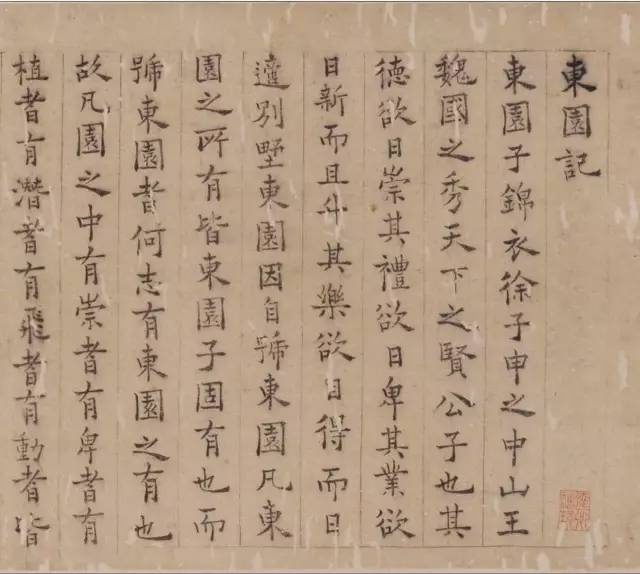 東園記
東園子錦衣徐子申之中山王
魏國之秀天下之賢公子也其
德欲日崇其禮欲日卑其業欲
日新而且升其樂欲日得而日
邅別墅東園因自號東園凡東
園之所有皆東園子固有也而
號東園者何志有東園之有也
故凡園之中有崇者有卑者有
植者有潛者有飛者有動者皆